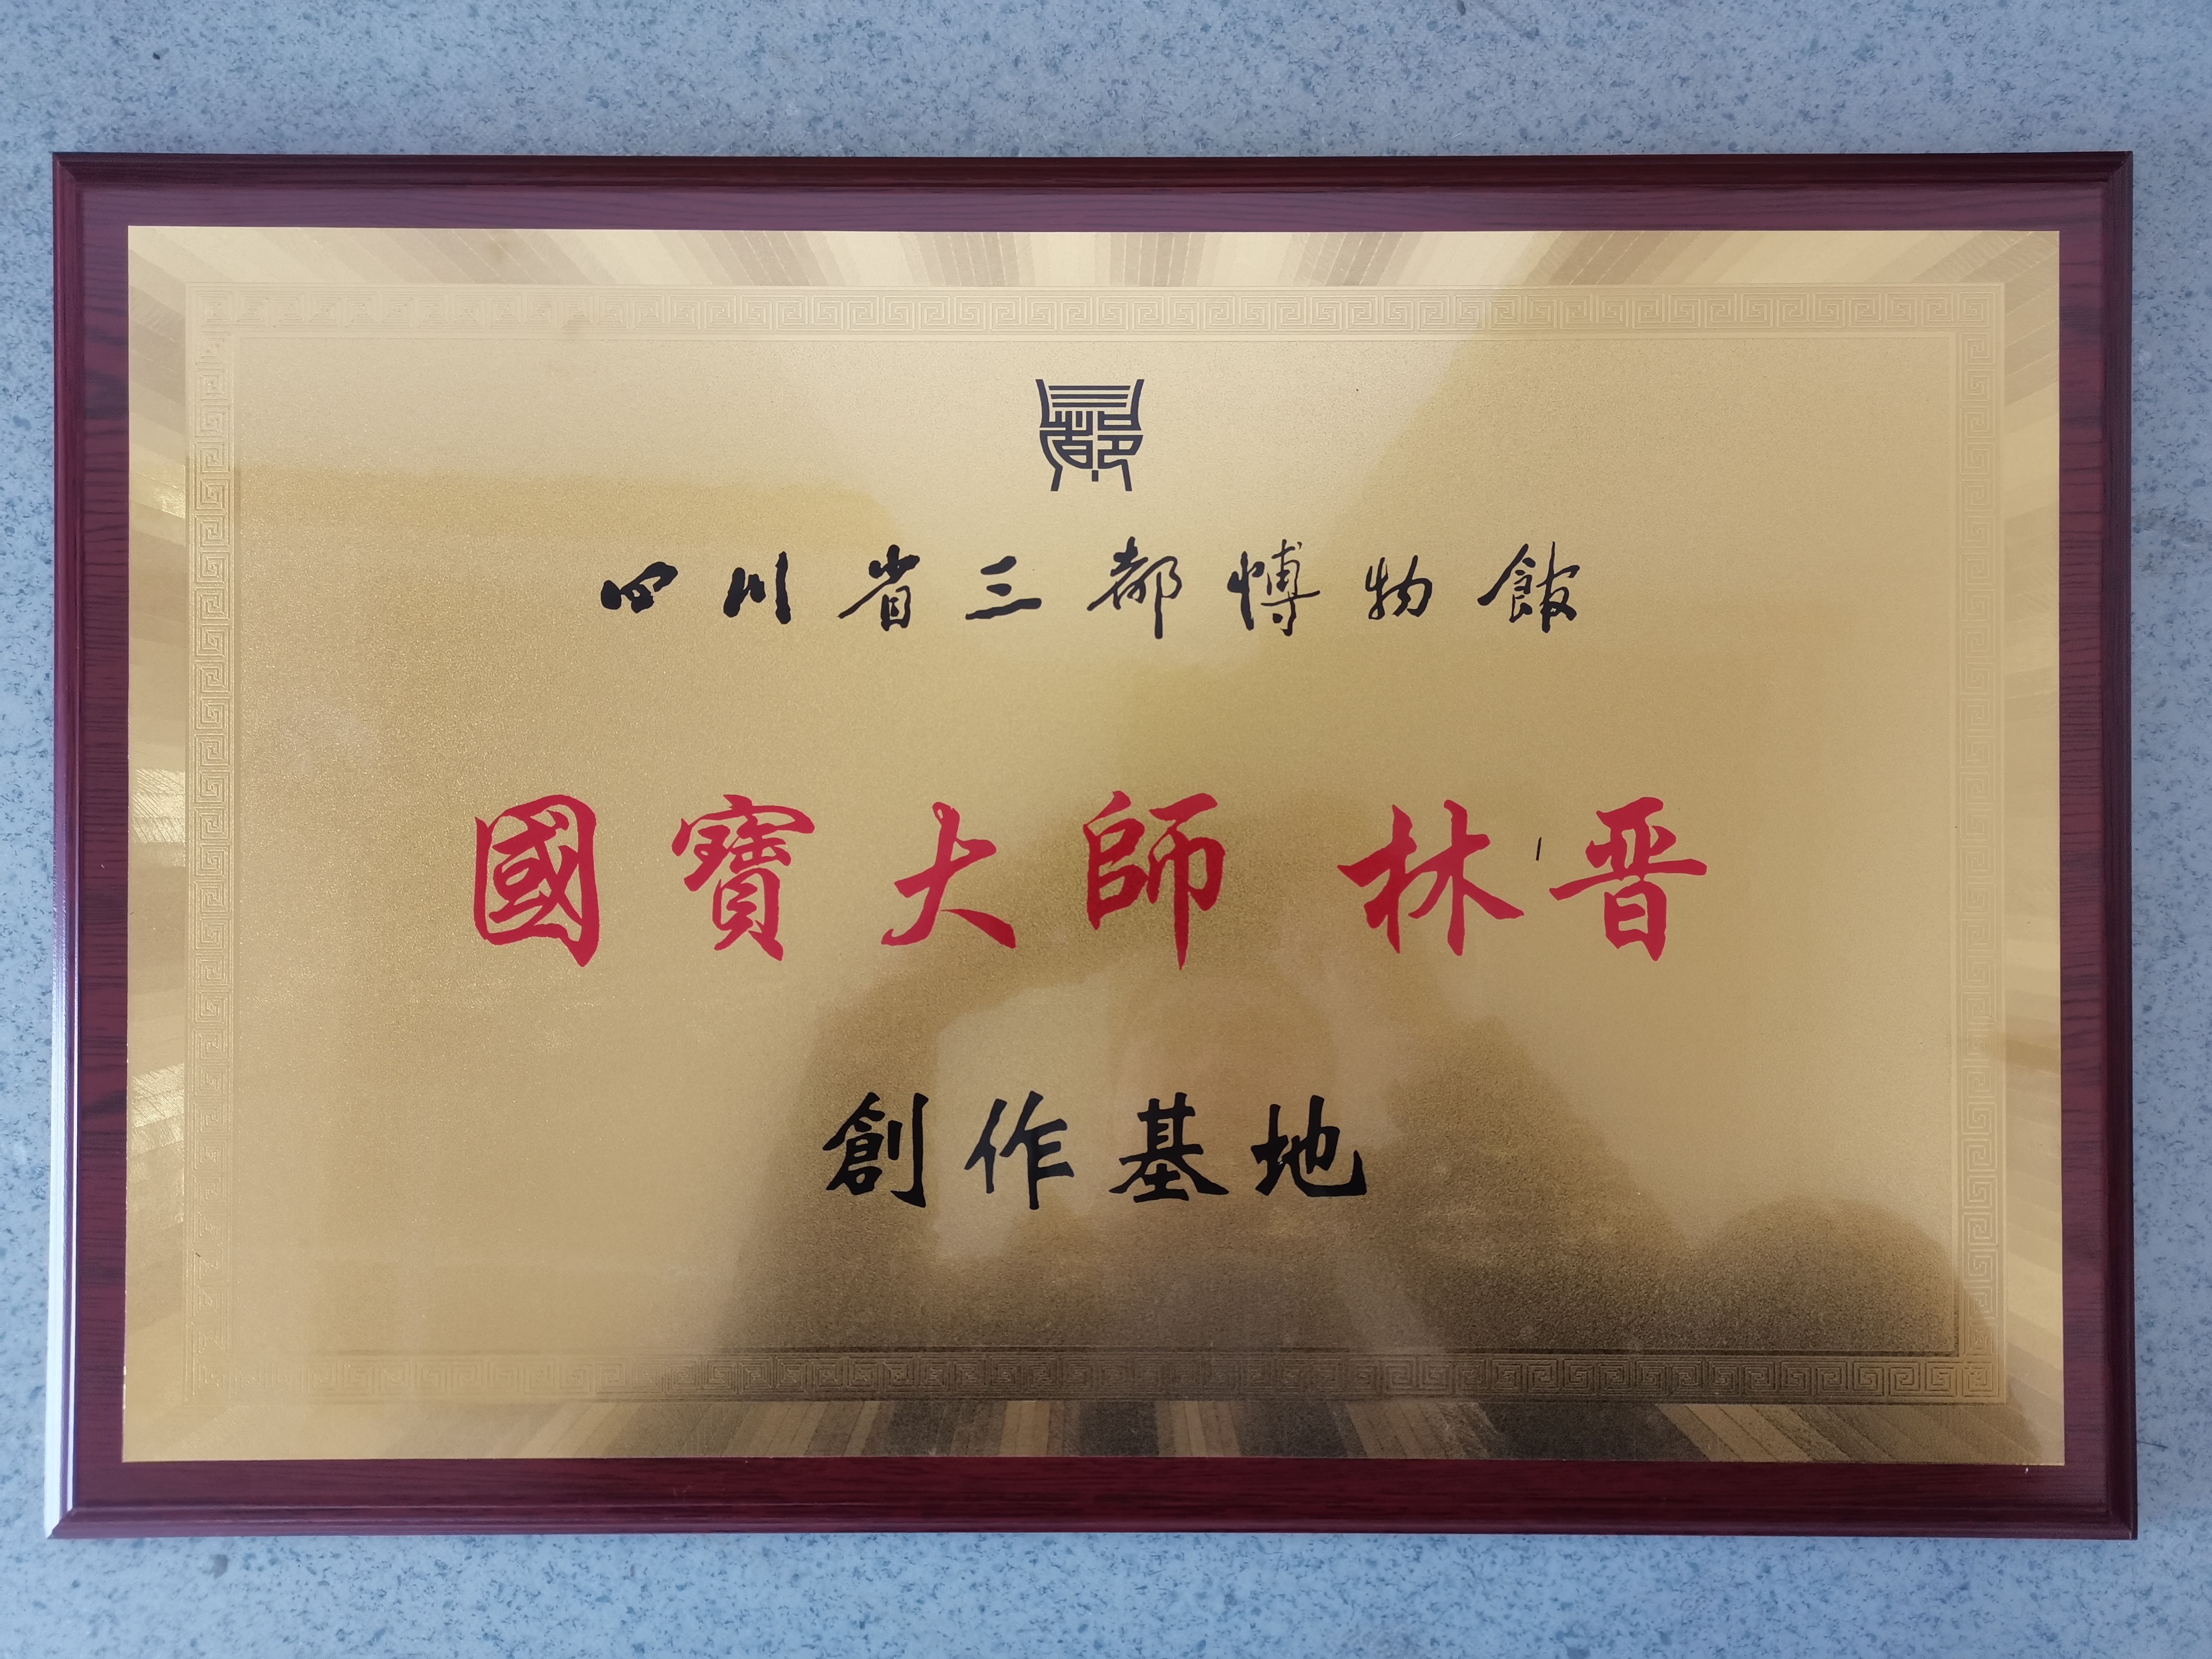 四川省三都博物館
國寶大師 林晋
創作基地